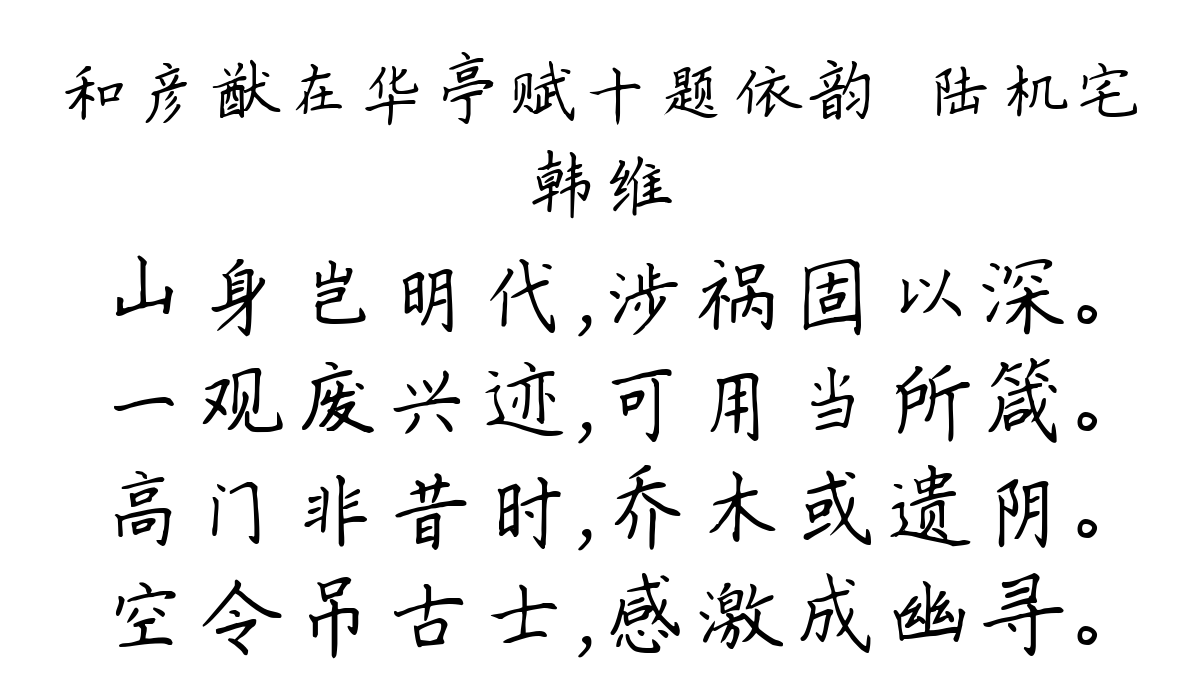 和彦猷在华亭赋十题依韵 陆机宅
韩维
山身岂明代,涉祸固以深。
一观废兴迹,可用当所箴。
高门非昔时,乔木或遗阴。
空令吊古士,感激成幽寻。